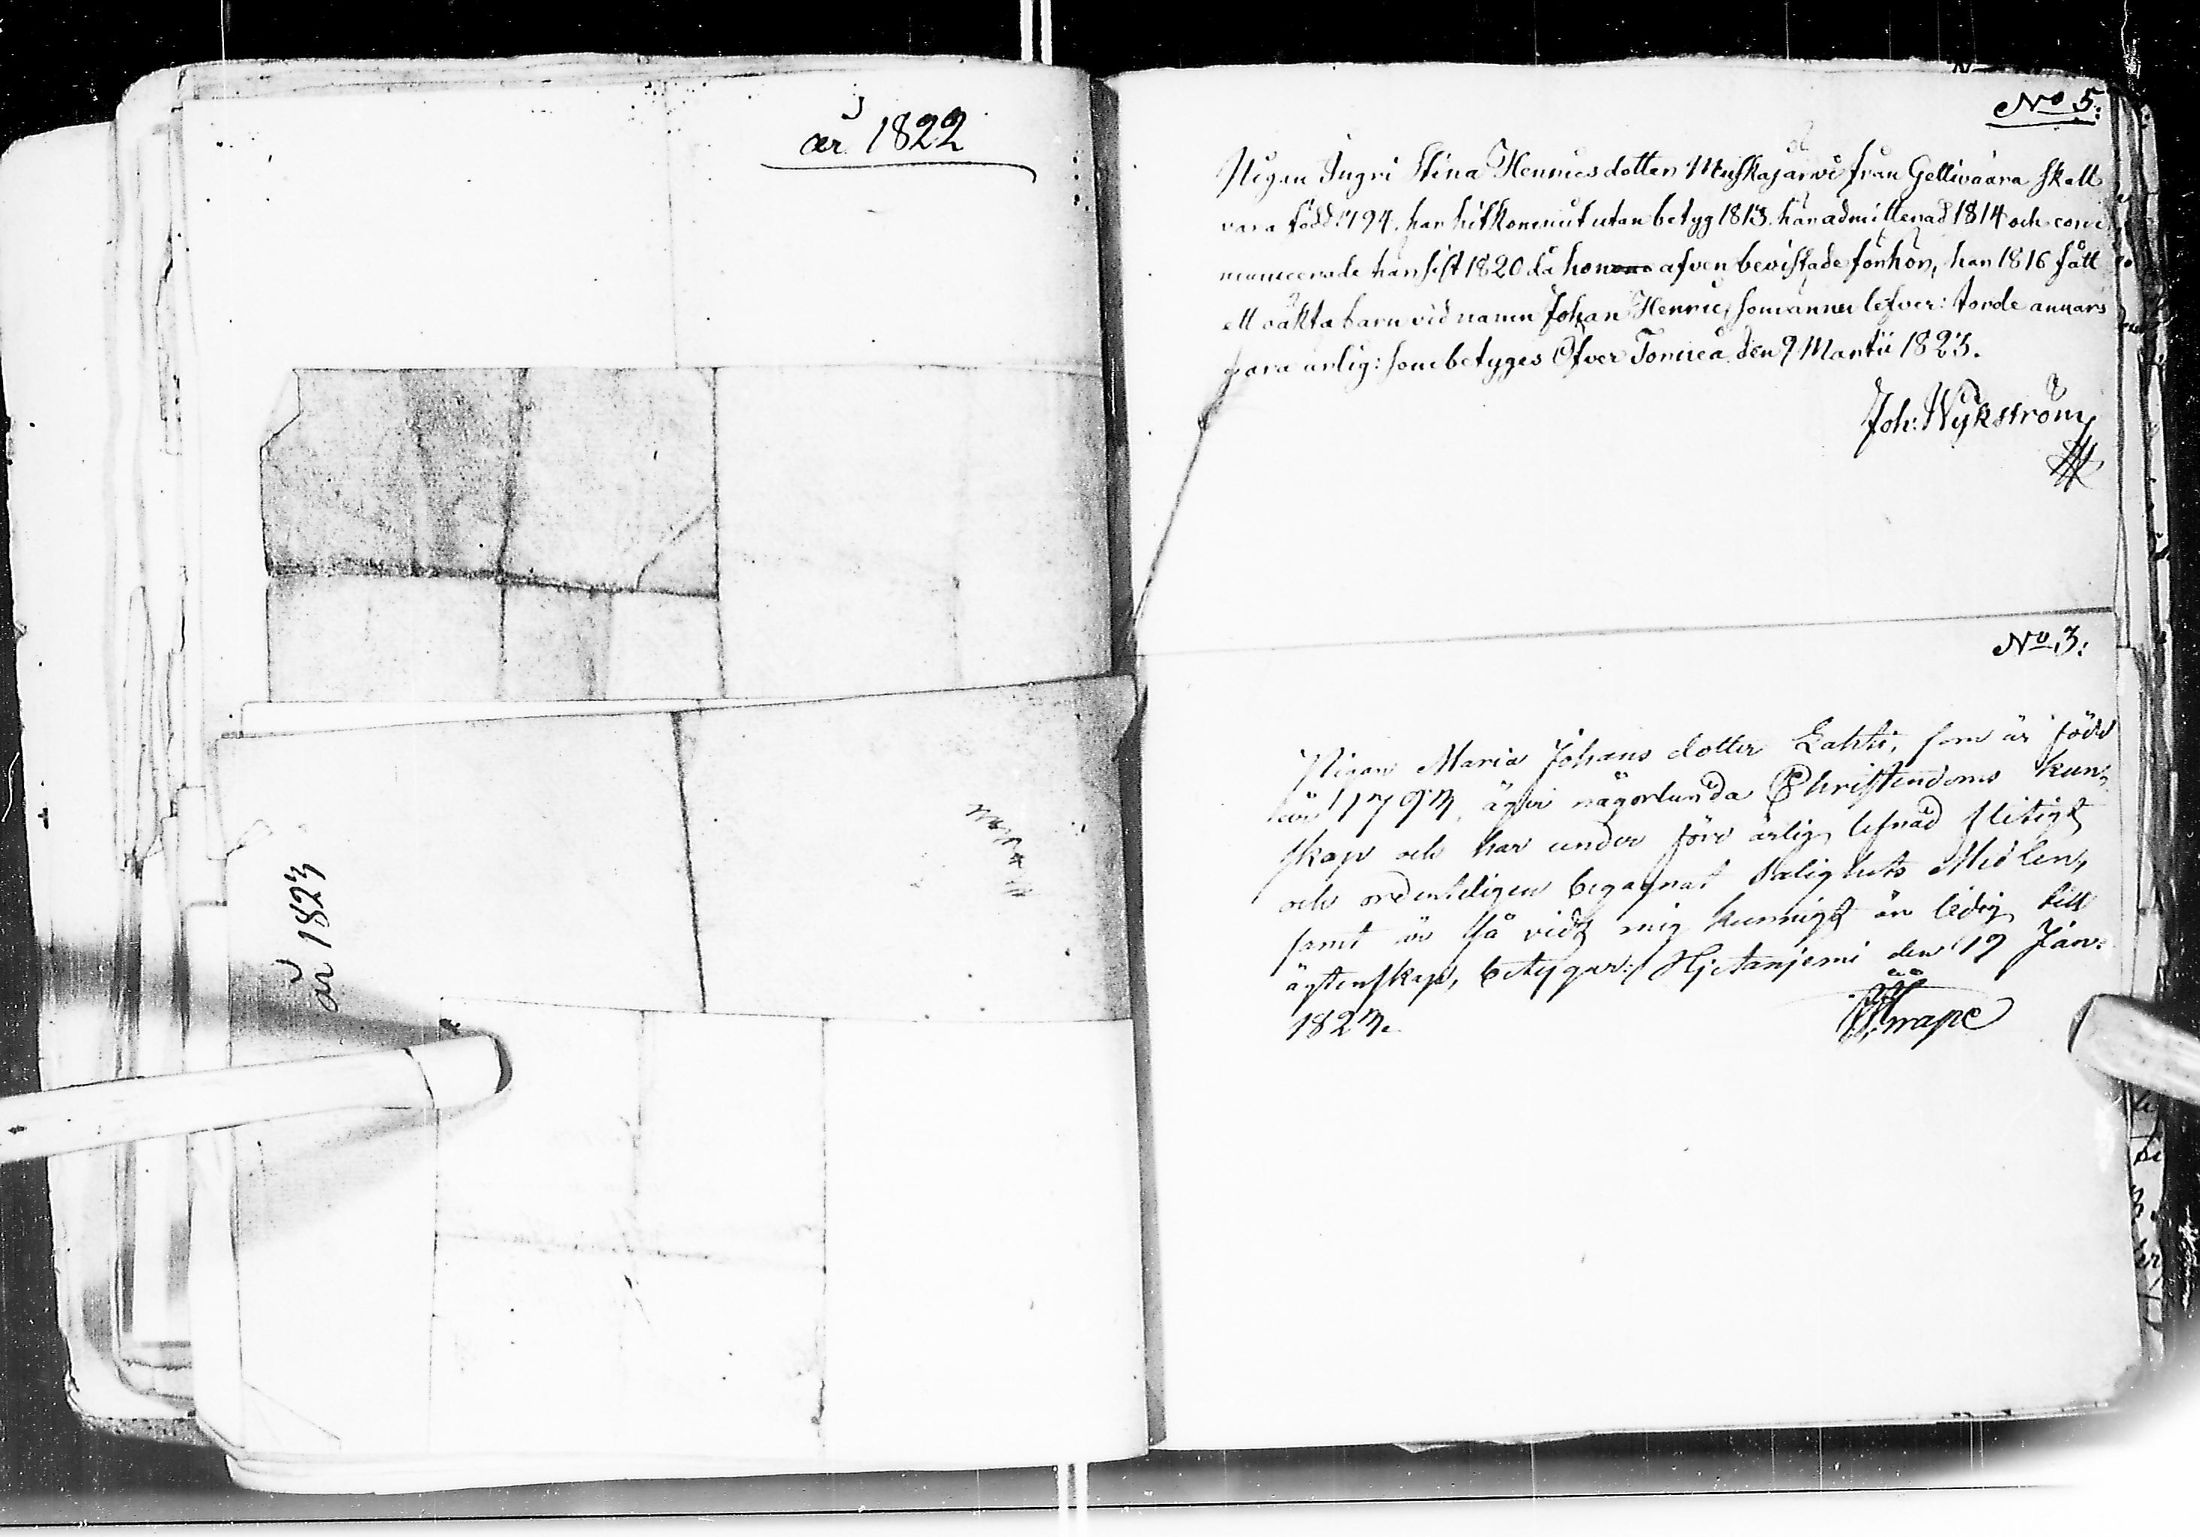 år 1822
år 1823
No 5:
Pigan Ingri Stina Henricsdotter Muskajärvi från Gellivaara skall
vara född 1794. har hitkommit utan betyg 1813. har admitterad 1814 och com
municerade han sist 1820 då hon äfven bevistade förhör, han 1816 fått
ett oäkta barn vid namn Johan Henric, som ännu lefver: torde annars
vara ärlig: som betyges Öfver Torneå den 9 Martii 1823.
Joh: Wykström
No 3:
Pigan Maria Johans dotter Lahti, som är född
1793, äger någorlunda Christendoms kun¬
skap och har under förd ärlig lefnad flitigt
och ordenteligen begagnat Salighets Medlen,
samt är så vidt mig kunnigt är ledig till
ägtenskap, betygar: Hjetanjemi den 19 Jan:
1823.